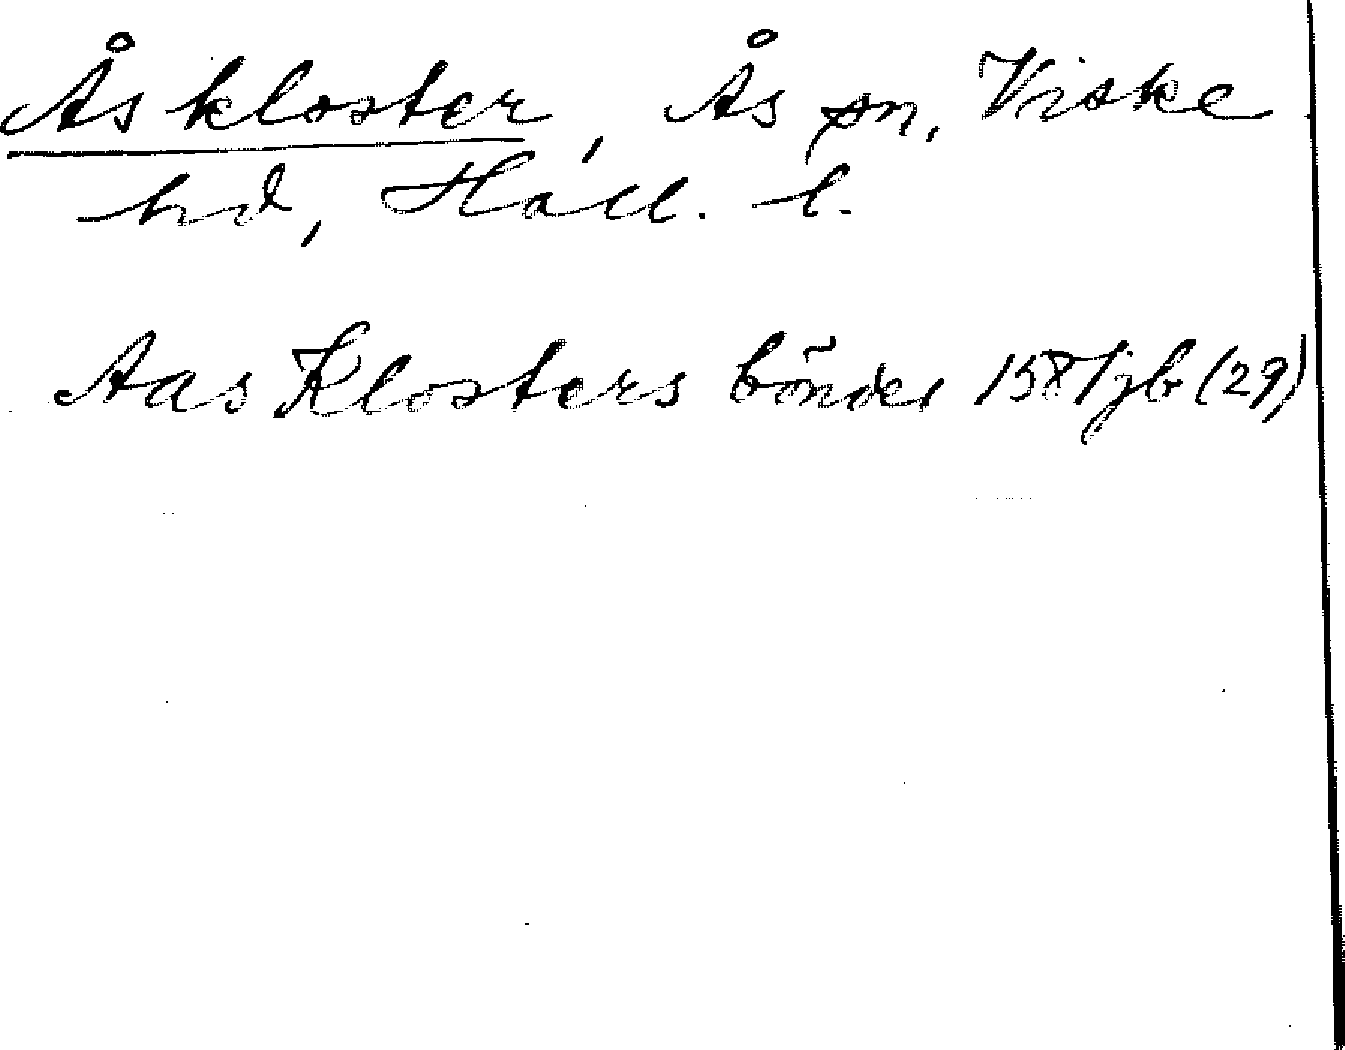 Ås kloster, Ås sn, Viske
hd, Hall. l.
Aas Klosters bönder 1587 jb (29)